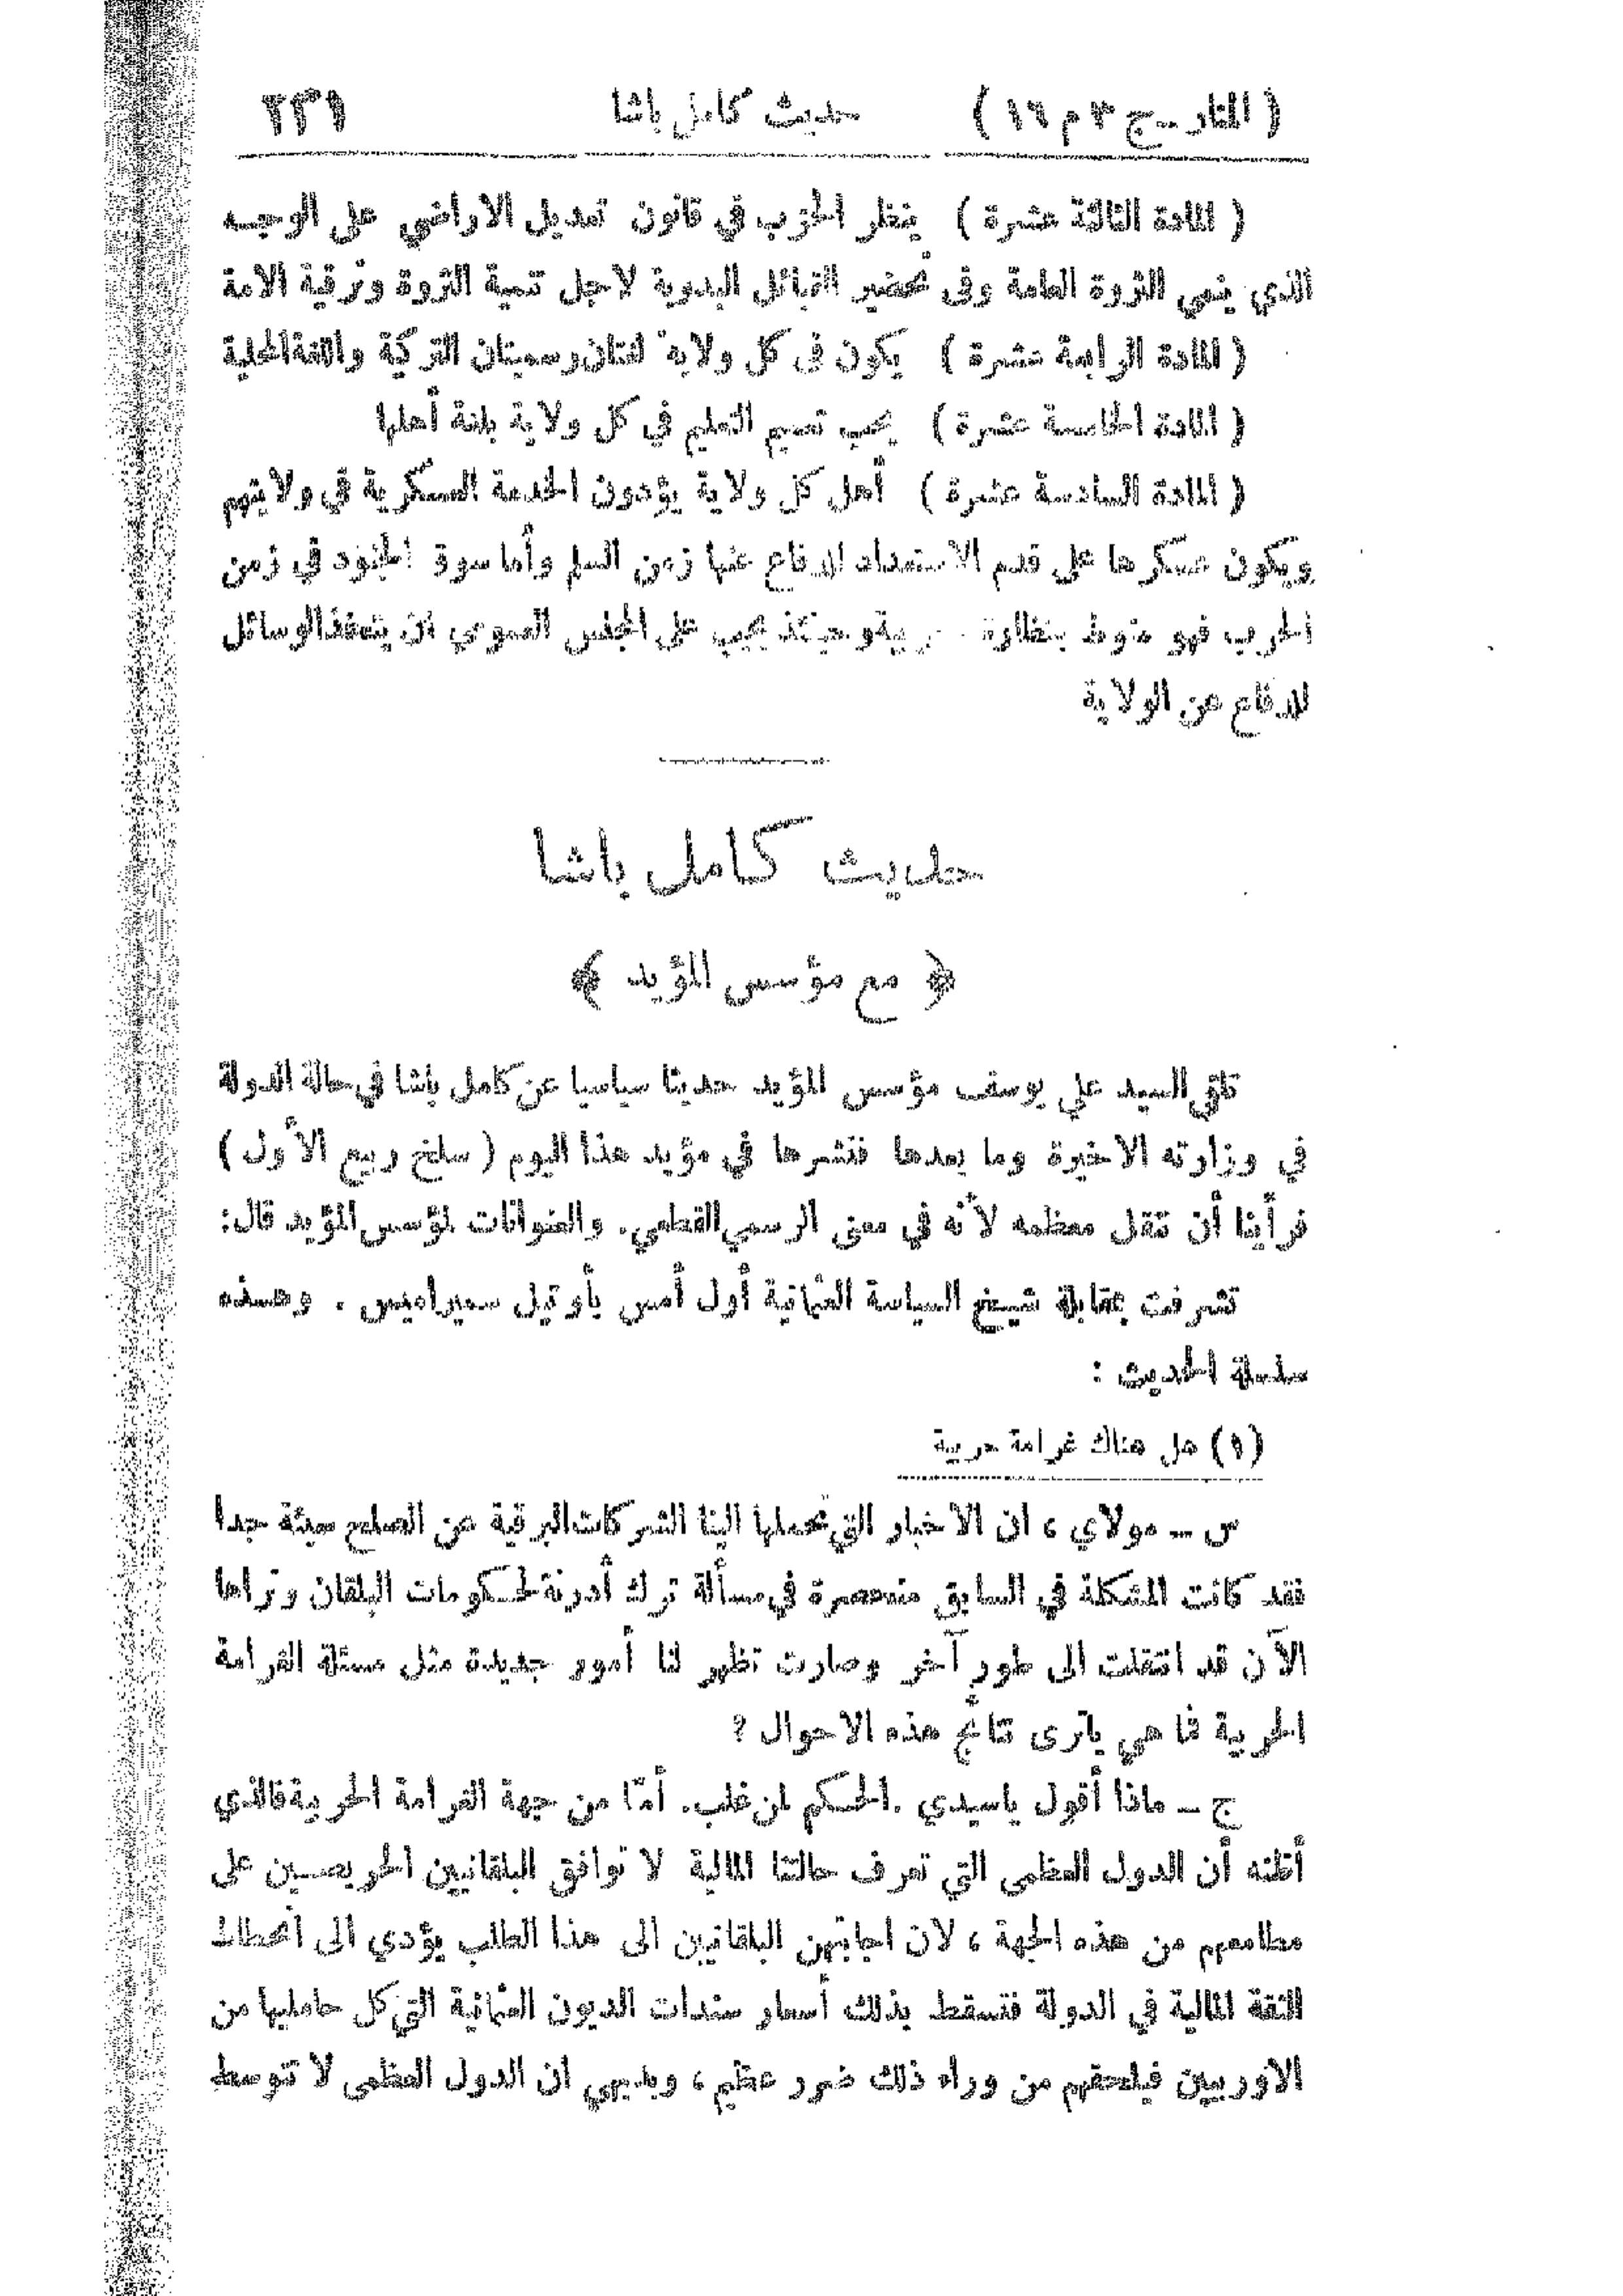 ( المنار ـ ج ٣ م ١٦ ) حديث كامل باشا ٢٣١
( المادة الثالثة عشرة ) ينظر الحزب في قانون تعديل الاراضي على الوجه
الذي ينمي الثروة العامة وفى تحضير القبائل البدوية لاجل تنمية الثروة وترقية الامة
( المادة الرابعة عشرة ) يكون فى كل ولاية لغتان رسميتان التركية واللغة المحلية
( المادة الخامسة عشرة ) يجب تعميم التعليم في كل ولاية بلغة أهلها
( المادة السادسة عشرة ) أهل كل ولاية يؤدون الخدمة العسكرية في ولايتهم
ويكون عسكرها على قدم الاستعداد للدفاع عنها زمن السلم وأما سوق الجنود في زمن
الحرب فهو منوط بنظارة وحينئذ يجب على المجلس العمومي ان يتخذ الوسائل
للدفاع عن الولاية
حديث كامل باشا
﴿ مع مؤسس المؤيد ﴾
تلقى السيد علي يوسف مؤسس المؤيد حديثا سياسيا عن كامل باشا في حالة الدولة
في وزارته الاخيرة وما بعدها فنشرها في مؤيد هذا اليوم ( سلخ ربيع الأول )
فرأينا أن ننقل معظمه لأنه في معنى الرسمي القطعي. والعنوانات لمؤسس المؤيد قال:
تشرفت بمقابلة شيخ السياسة العثمانية أول أمس بأوتيل سميراميس . وهذه
سلسلة الحديث :
(١) هل هناك غرامة حربية
س ـ مولاي ، ان الاخبار التي تحملها الينا الشركات البرقية عن الصلح سيئة جدا
فقد كانت المشكلة في السابق منحصرة في مسألة ترك أدرنة لحكومات البلقان ونراها
الآن قد انتقلت الى طور آخر وصارت تظهر لنا أمور جديدة مثل مسئلة الغرامة
الحربية فما هي ياترى نتائج هذه الاحوال ؟
ج ـ ماذا أقول ياسيدي .الحكم لمن غلب. أمّا من جهة الغرامة الحربية فالذي
أظنه أن الدول العظمى التي تعرف حالتنا المالية لا توافق البلقانيين الحريصين على
مطامعهم من هذه الجهة ، لان اجابتهن البلقانيين الى هذا الطلب يؤدي الى انحطاط
الثقة المالية في الدولة فتسقط بذلك أسعار سندات الديون العثمانية التي كل حامليها من
الاوربيين فيلحقهم من وراء ذلك ضرر عظيم ، وبديهي ان الدول العظمى لا تتوسط